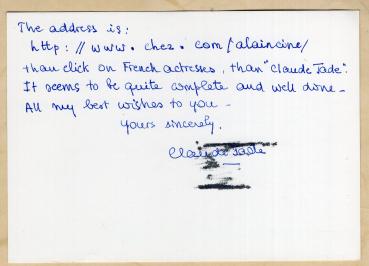 The address is:
http://www.chez.com/alaincine/
than click on French actresses, than "Claude Jade".
It seems to be quite complete and well done -
All my best wishes to you -
Yours sincerely,
Claude Jade